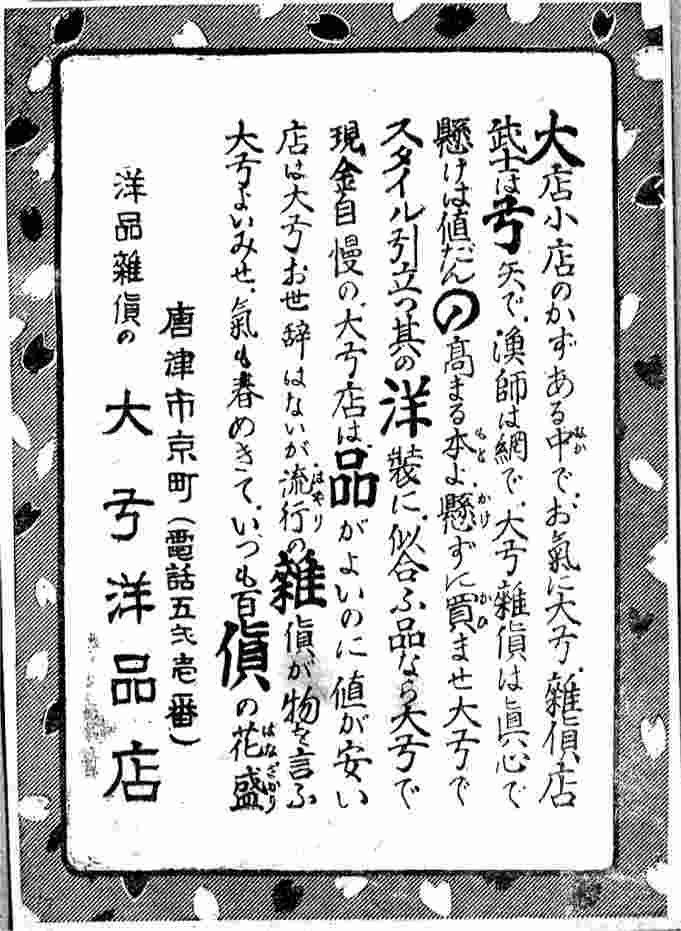 大店小店のかずある中で、お氣に大弓、雜貨店
なか
武士は弓矢で、漁師は網で、大弓雜貨は眞心で
懸けは値だんの高まる本よ懸ずに買ませ大弓で
もと かけ かひ
スタイル引立つ其の洋裝に、似合ふ品なら大弓で
現金自慢の、大弓店は、品がよいのに値が安い
店は大弓お世辞はないが流行の雜貨が物を言ふ
はやり
大弓よいみせ、氣も春めきて、いつも百貨の花盛
はなざかり
唐津市京町(電話五弐壱番)
洋品雜貨の 大弓洋品店